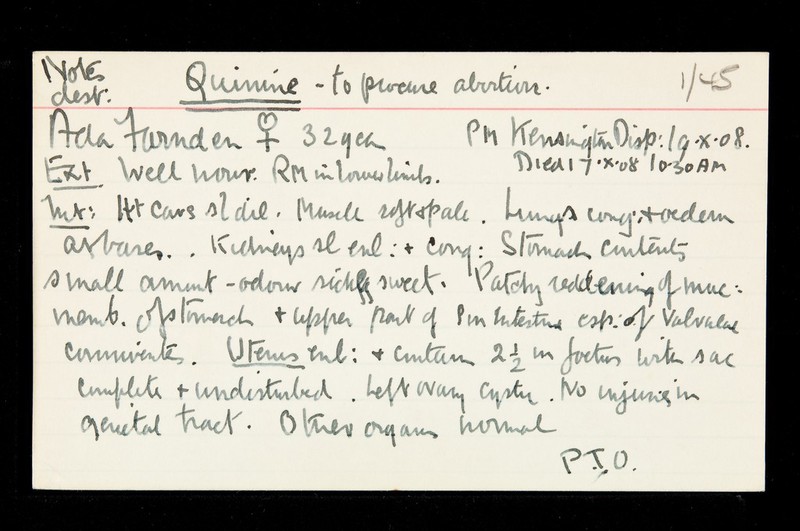 Notes dest: Quinine - to procure abortion. 1/45
Ada Farnden ♀ 32 year PM Kensington Disp: 19.X.08.
Died 17.X.08 10.30 AM
Ext. Well nour. RM in lower limbs.
Int: Ht cavs sl dil. Muscle soft & pale. Lungs cong: & oedem
at bases. . Kidneys sl enl: & cong: Stomach contents
small amount - odour sickly sweet. Patchy reddening of muc:
memb. of stomach & upper part of Sm Intestine esp: of Valvulae
conniventes. Uterus enl: & contain 2½ in foetus with sac
complete & undisturbed. Left ovary cystic. No injuries in
genital tract. Other organs normal
P.T.O.